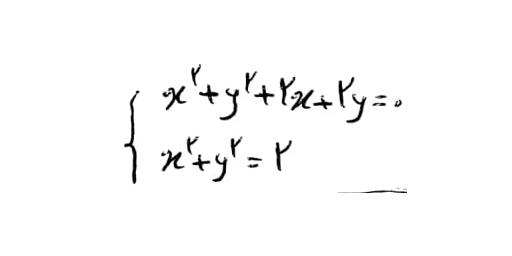 x^۲+y^۲+۲x+۲y=۰
x^۲+y^۲=۲